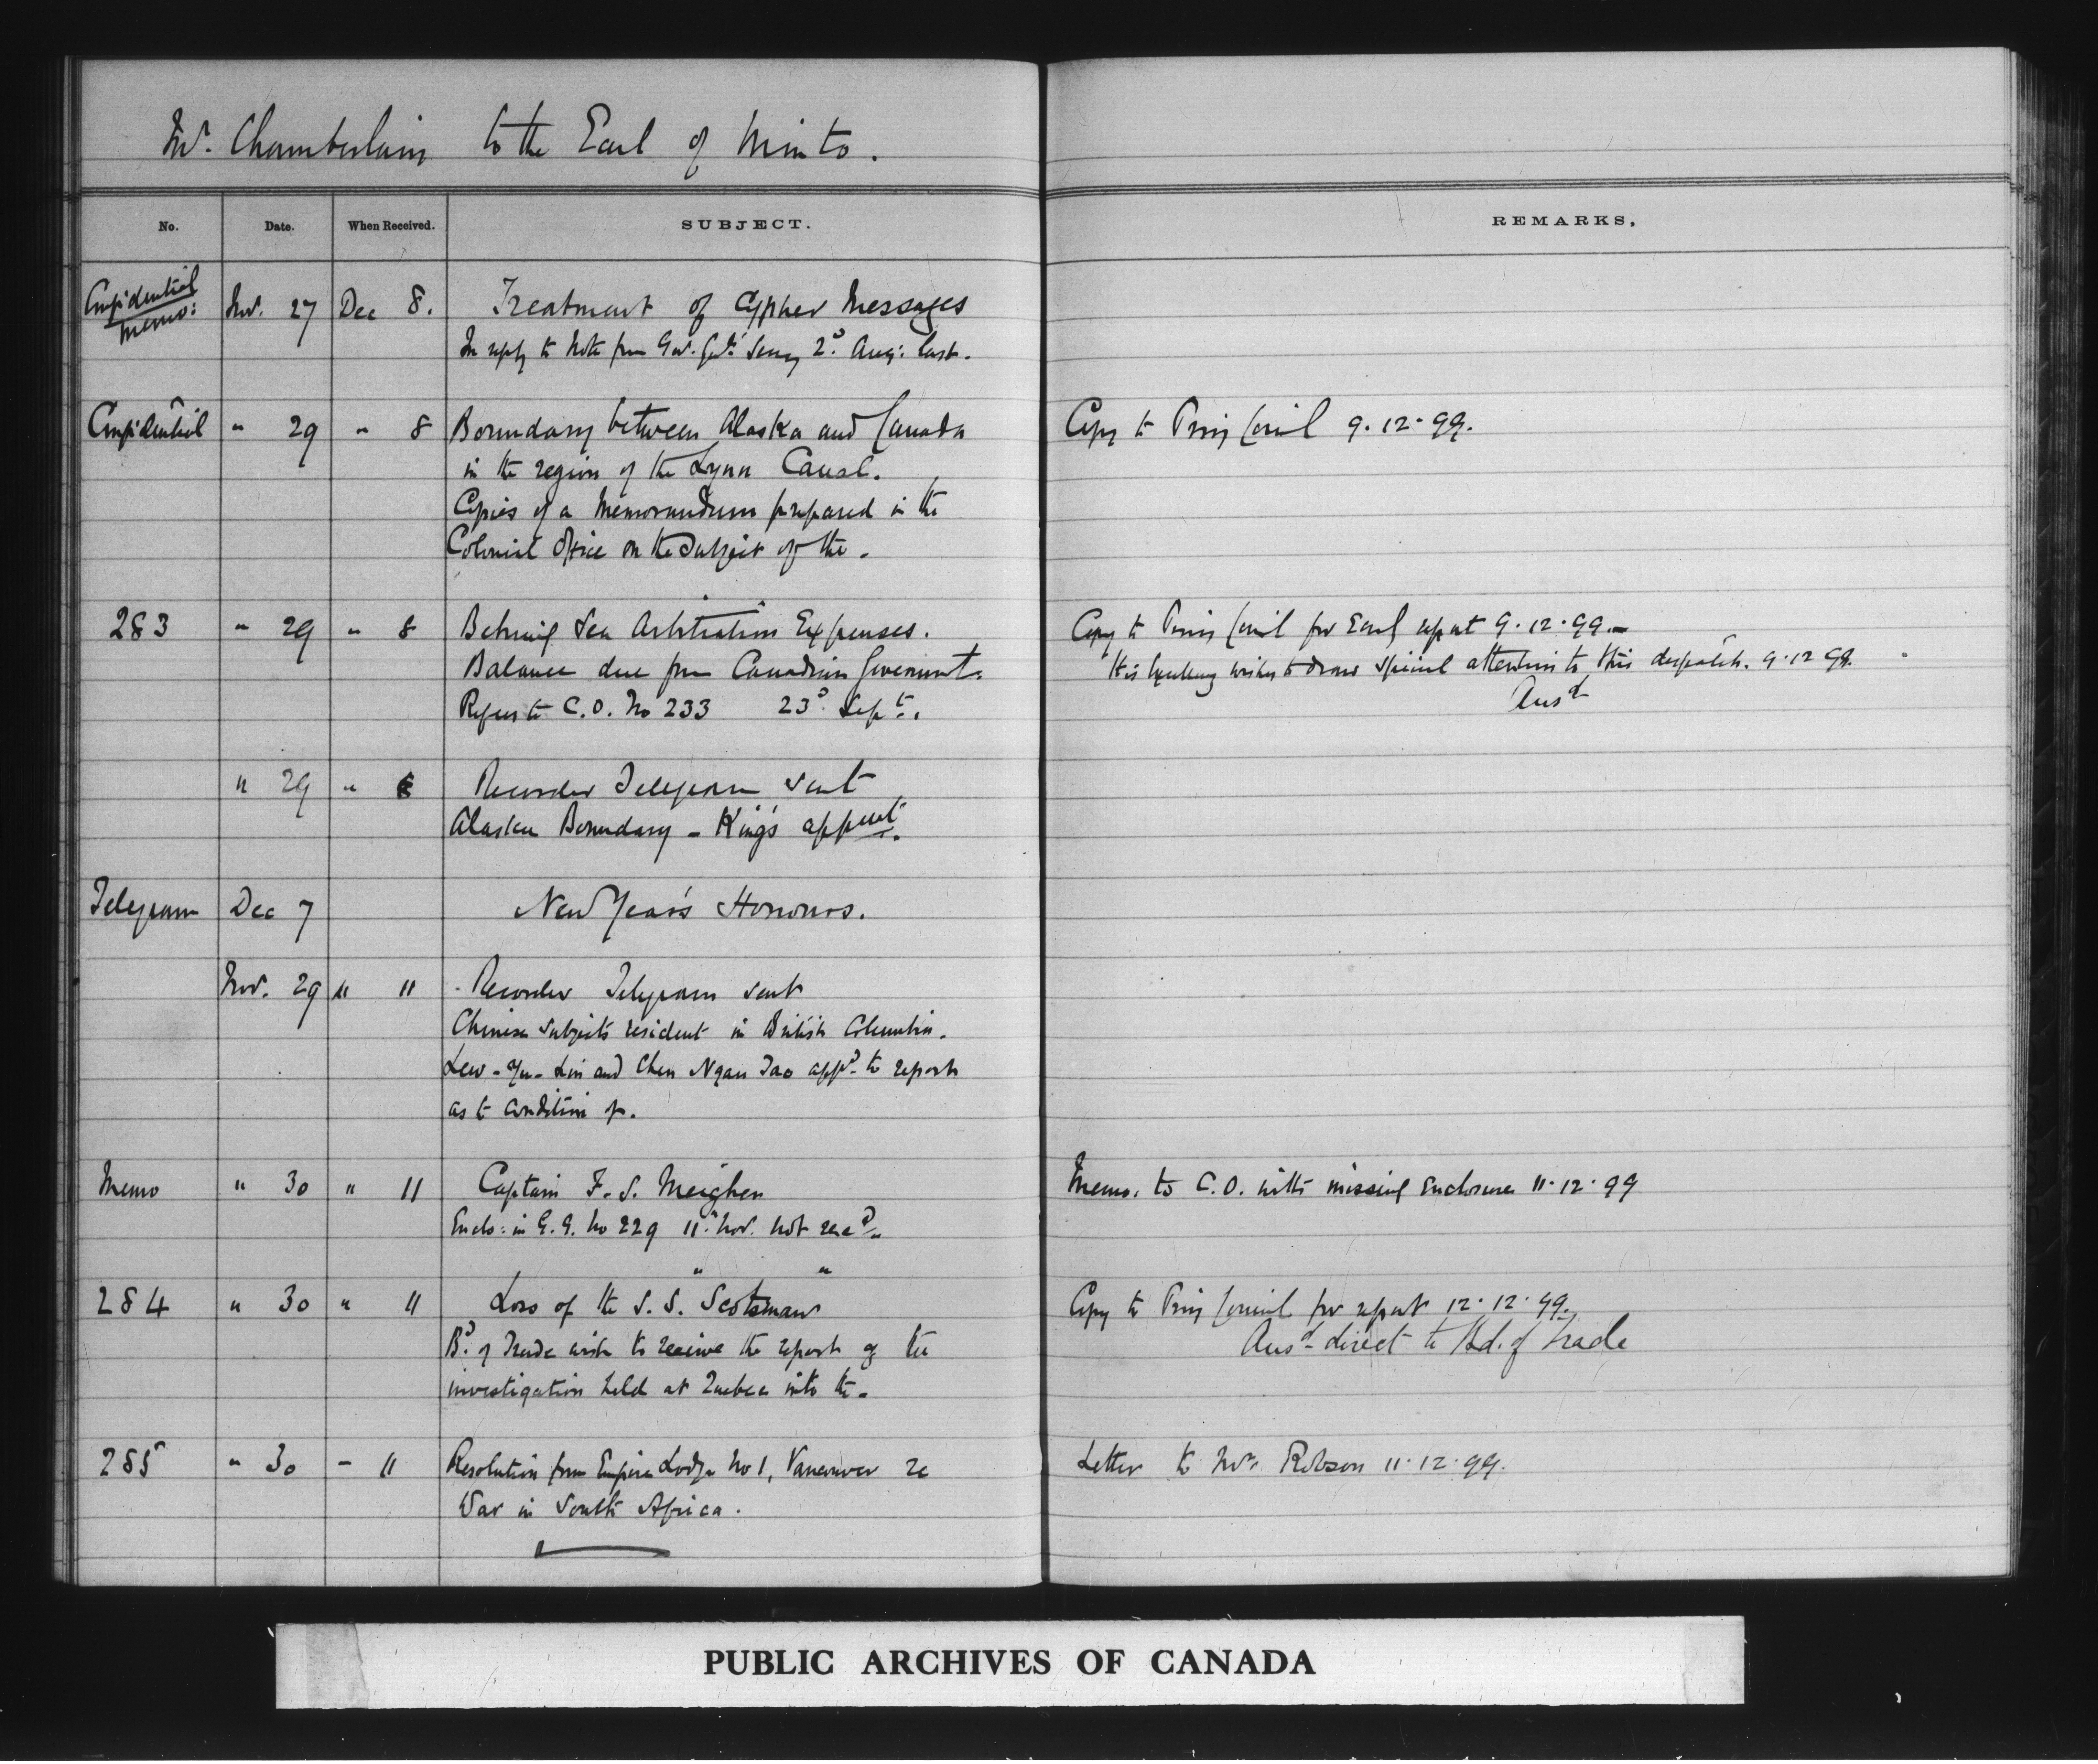 Mr. Chamberlain to the Earl of Minto.
No. Date. When Received. SUBJECT. REMARKS.
Confidential Memo: Nov. 27 Dec 8. Treatment of Cypher Messages
In reply to Note from Gov. Genl's Secy 2d Aug: last.
Confidential " 29 " 8 Boundary between Alaska and Canada Copy to Privy Council 9.12.99.
in the region of the Lynn Canal.
Copies of a Memorandum prepared in the
Colonial Office on the subject of the.
283 " 29 " 8 Behring Sea Arbitration Expenses. Copy to Privy Council for Early report 9.12.99.-
Balance due from Canadian Government. His Excellency wishes to draw special attention to this despatch. 9.12 99.
Refers to C.O. No 233 23d Sept. Ansd
" 29 " 8 Recorder Telegram sent
Alaska Boundary - King's appent.
Telegram Dec 7 New Year's Honours.
Nov. 29 " 11 Recorder Telegram sent
Chinese subjects resident in British Columbia.
Lew-Yu-Lin and Chen Ngan Tao appd. to report
as to condition of.
Memo " 30 " 11 Captain F. S. Meighen Memo. to C.O. with missing Enclosure 11.12.99
Enclo: in G.G. No 229 11: Nov. not recd.
284 " 30 " 11 Loss of the S.S. "Scotsman" Copy to Privy Council for report 12.12.99.
Bd. of Trade wish to receive the report of the Ansd direct to Bd. of Trade
investigation held at Quebec into the.
285 " 30 - 11 Resolution from Empire Lodge No 1, Vancouver re Letter to Mr. Robson 11.12.99.
War in South Africa.
PUBLIC ARCHIVES OF CANADA